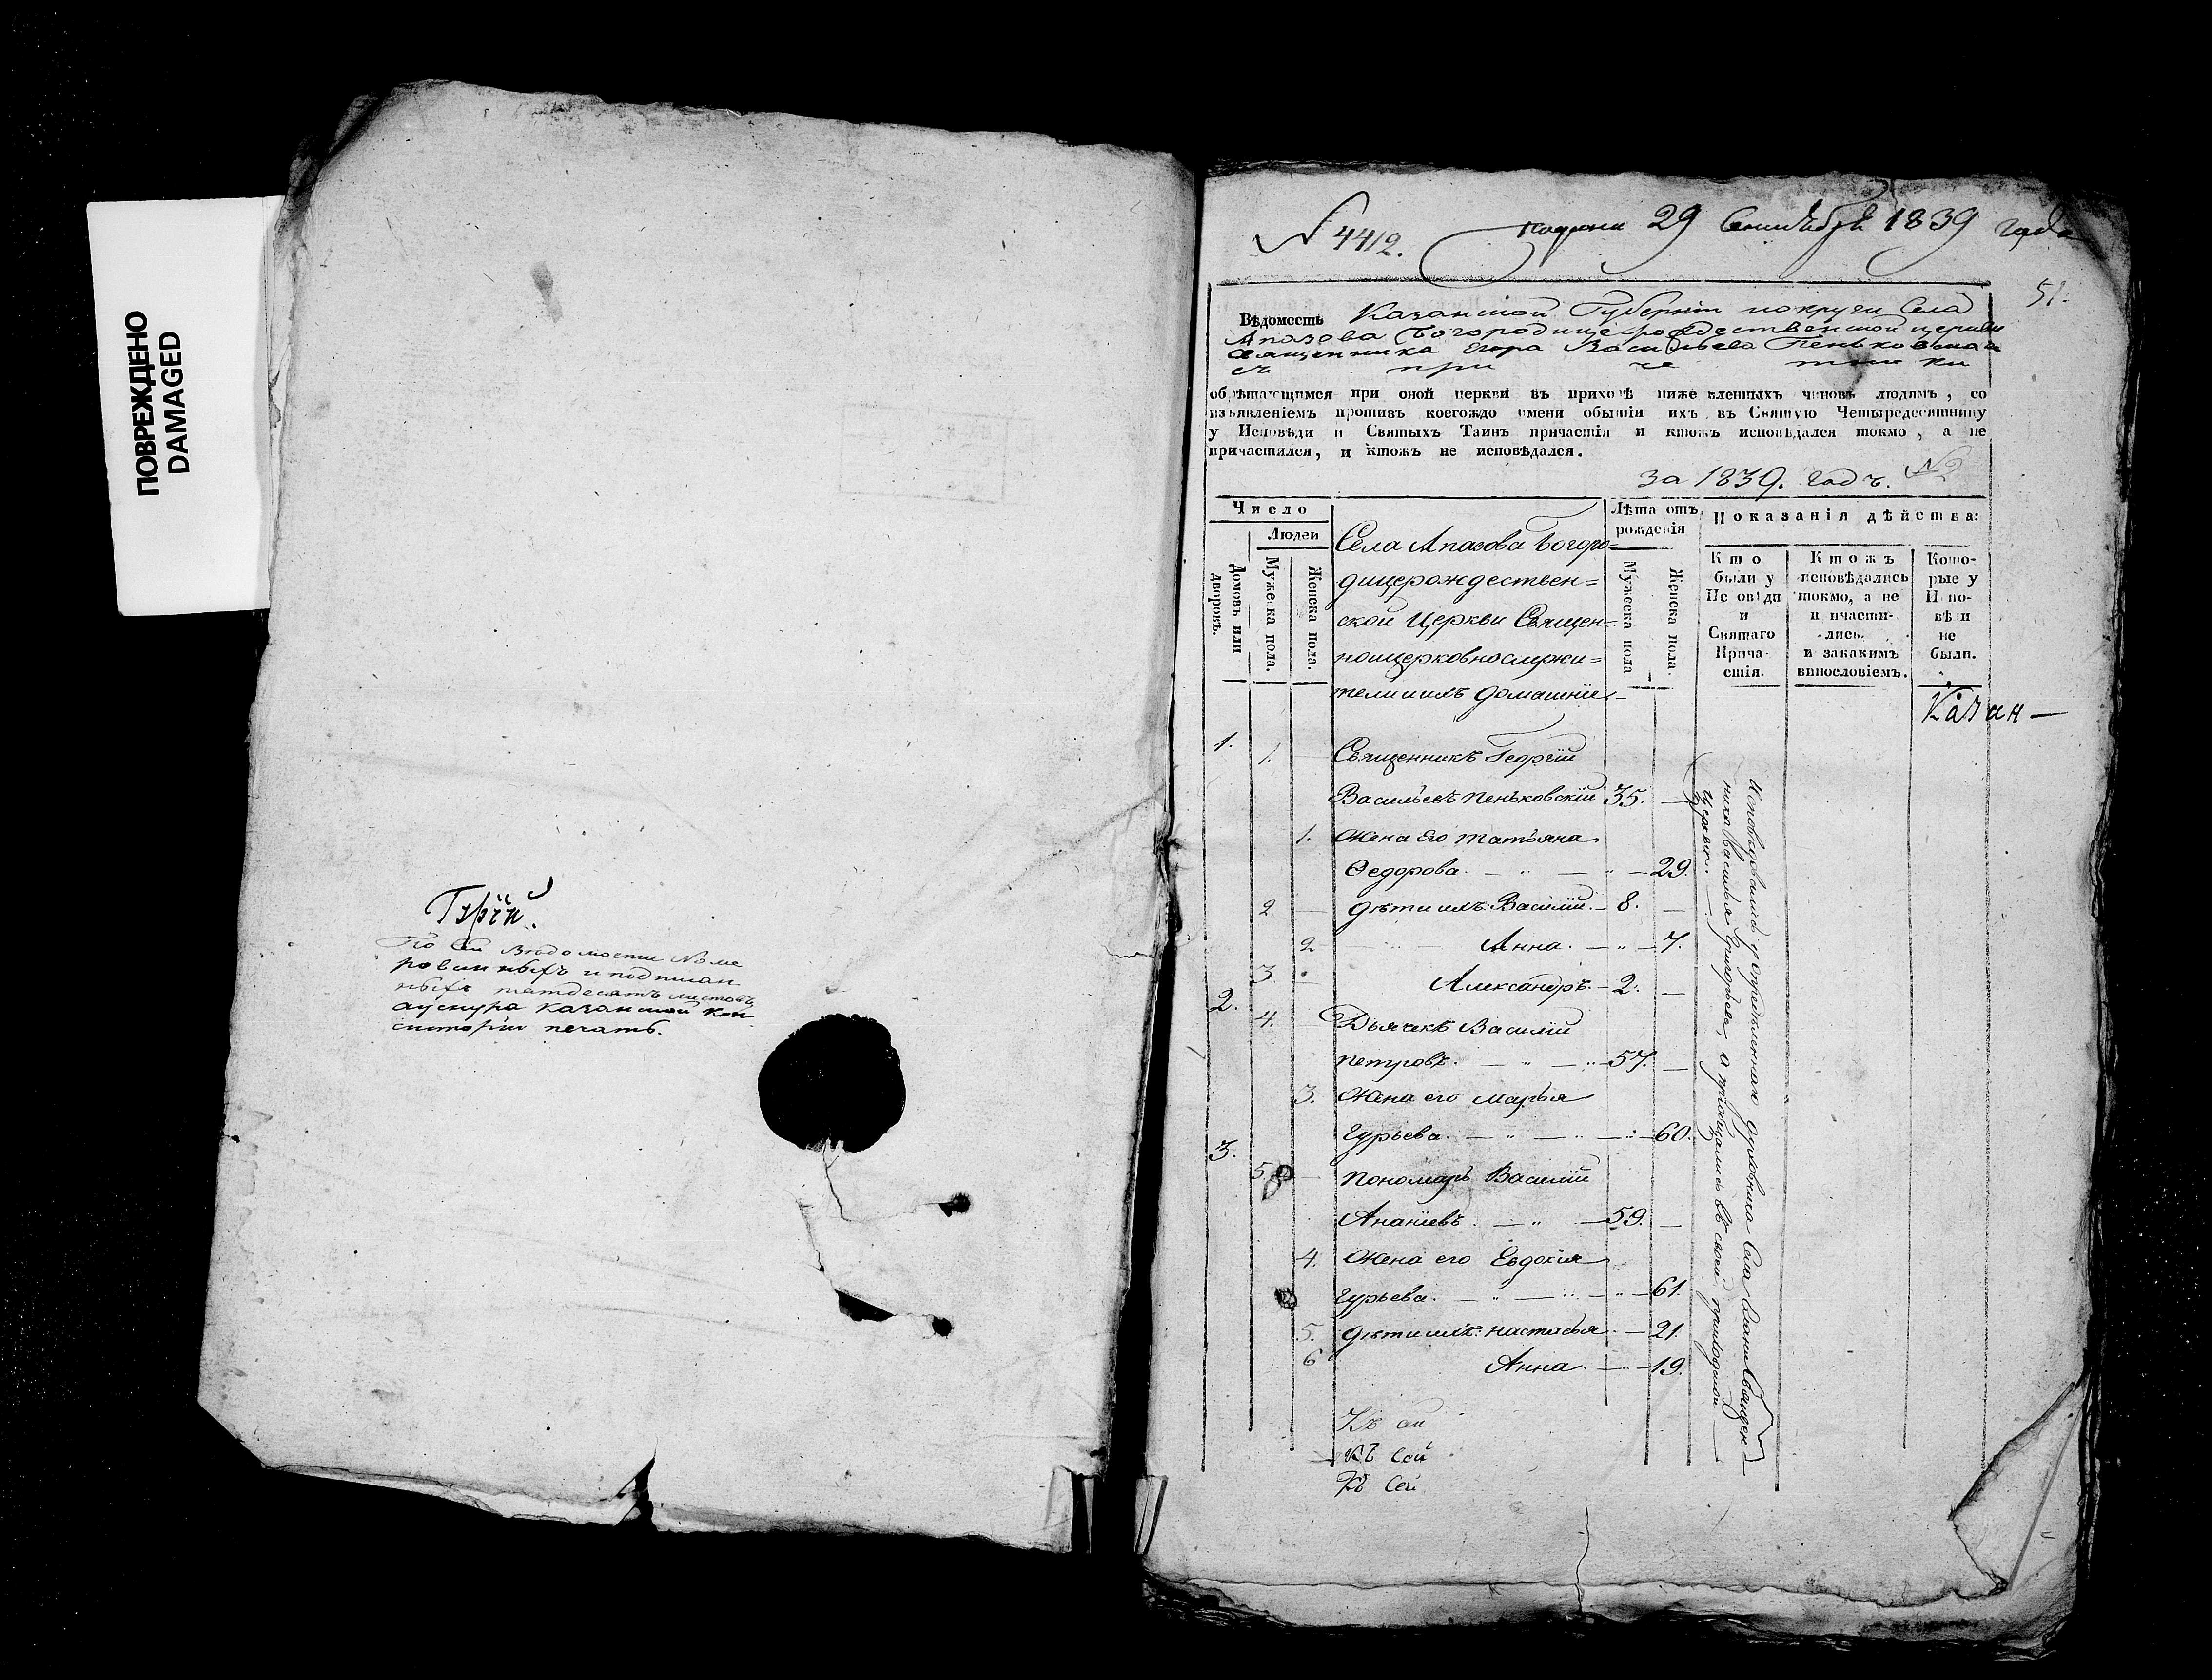 ПОВРЕЖДЕНО
DAMAGED
Гурій.
По сей Ведомости Номе
рованныхъ и подписан
ныхъ пятдесятъ листовъ
а у снура Казанской Кон
систоріи печать.
N 4412. 29 Сентября 1839 года
51.
Вѣдомость Казанской Губерніи округи Села
Апазова Богородицерождественской церкви
священника Егора Васильева Пеньковскаго
съ причетники
обрѣтающимся при оной церкви въ приходѣ ниже вленныхъ чиновъ людямъ, со
изъявленіемъ противъ коегождо имени обытіи ихъ въ Святую Четыредесятницу
у Исповѣди и Святыхъ Таинъ причастія и ктожъ исповѣдался токмо, а не
причастился, и ктожъ не исповѣдался.
за 1839. годъ. №
Число
Людей
Домовъ или
дворовъ.
Мужеска пола.
Женска пола.
Села Апазова Богоро=
дицерождествен=
ской Церкви Священ=
ноицерковнослужи=
тели и ихъ домашніе
Лѣта отъ
рожденія
Мужеска пола
Женска пола.
Показанія дѣйства:
Кто
были у
Исповѣди
и
Святаго
Прича-
стія.
Ктожъ
исповѣдались
токмо, а не
причасти-
лись.
и закакимъ
винословіемъ.
Кото-
рые у
Испо-
вѣди
не
были.
Казан—
1. 1. Священникъ Георгій
Васильевъ Пеньковскій 35. —
1. Жена Его Татьяна
Ѳедорова. — „ — „ — 29.
2 — Дѣти ихъ: Василій. — 8. —
2 — Анна. — „ — 7.
3 — Александръ. — 2. —
2. 4. Дьячекъ Василій
Петровъ. — „ — „ — 57. —
3. Жена его Марья
Гурьева. — „ — „ — „ — 60.
3. 5 — Пономарь Василій
Ананіевъ. — „ — 59. —
4. Жена его Евдокія
Гурьева. — „ — „ — „ — 61.
5. Дѣти ихъ: Настасья. — 21.
6 Анна. — — 19.
Исповѣдовались у определеннаго духовника Села Священ
ника Васильья Григорьева, а приобщались въ своей приходской
Церкви. —
Къ сей
Къ Сей
Къ Сей